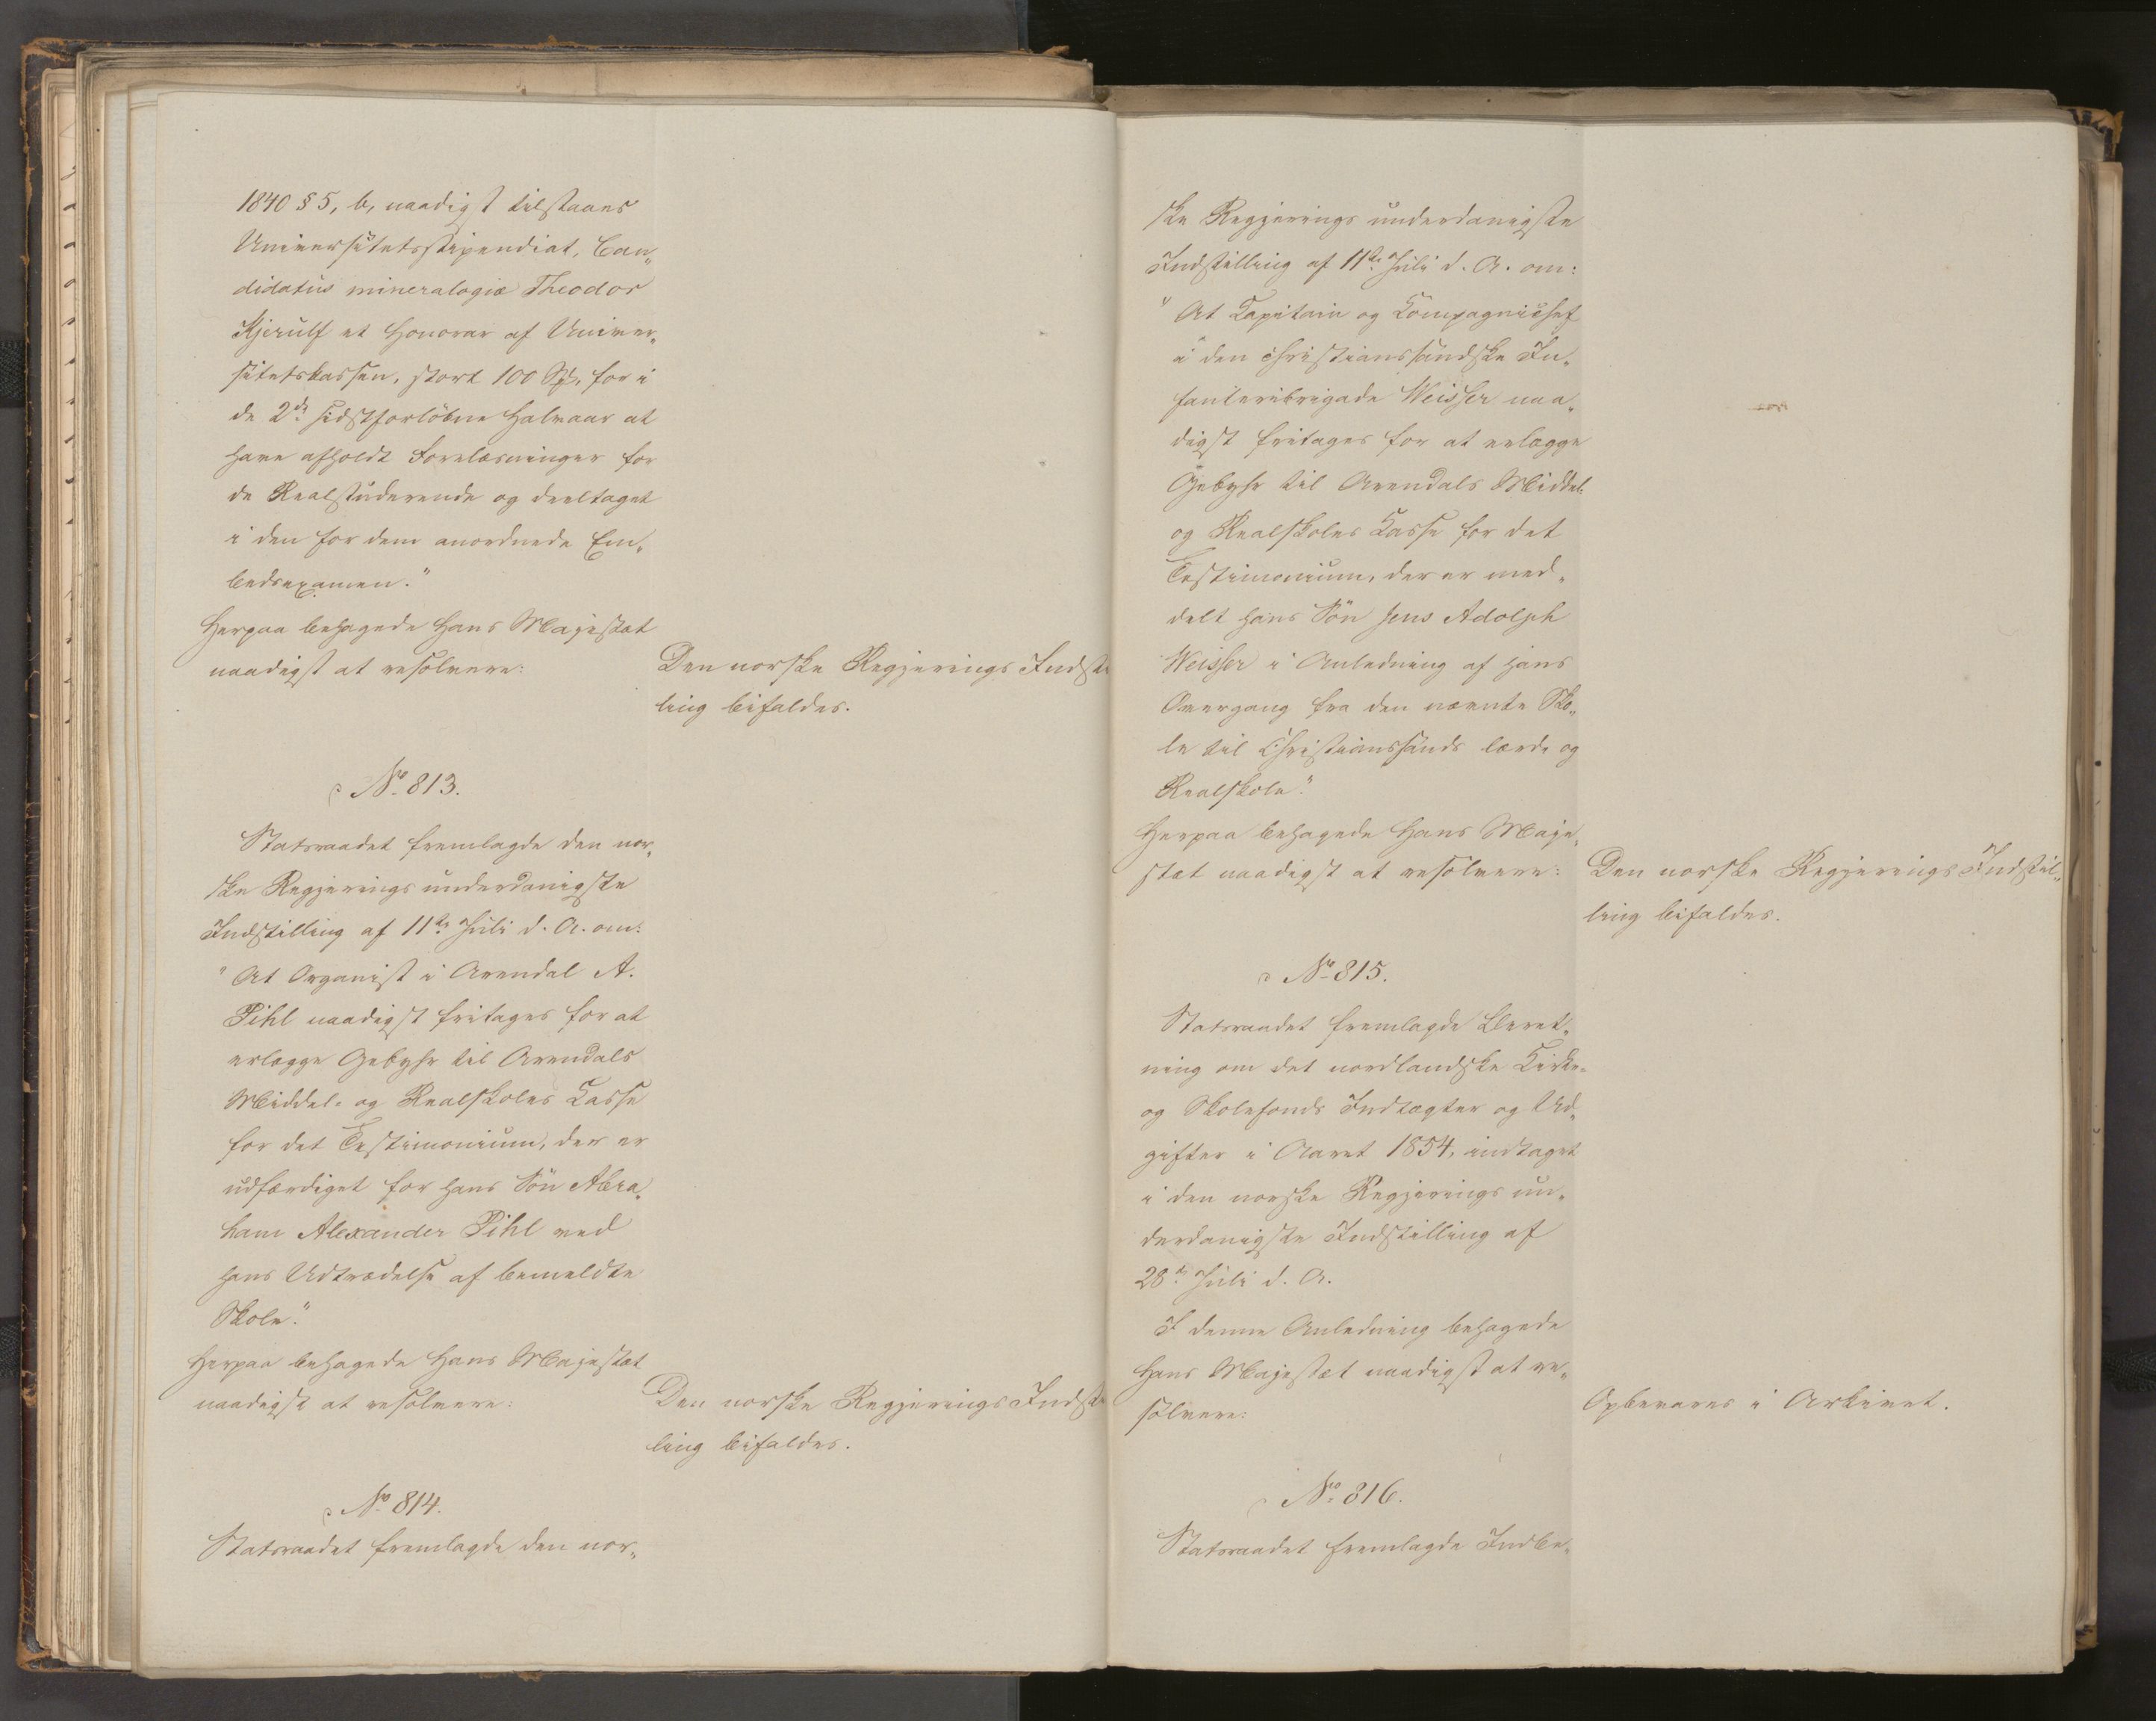 1840 § 5, b, naadigst tilstaaes
Universitetsstipendiat, Can„
didatus mineralogiæ Theodor
Kjerulf et Honorar af Univer„
sitetskassen, stort 100 Spd, for i
de 2de sidstforløbne Halvaar at
have afholdt Forelæsninger for
de Realstuderende og deeltaget
i den for dem anordnede Em„
bedsexamen."
Herpaa behagede Hans Majestæt
naadigst at resolvere:
Den norske Regjerings Indstil
ling bifaldes.
No 813.
Statsraadet fremlagde den nor„
ske Regjerings underdanigste
Indstilling af 11te Juli d. A. om:
"At Organist i Arendal A.
Pihl naadigst fritages for at
erlægge Gebyhr til Arendals
Middel- og Realskoles Casse
for det Testimonium, der er
udfærdiget for hans Søn Abra„
ham Alexander Pihl ved
hans Udtrædelse af bemeldte
Skole."
Herpaa behagede Hans Majestæt
naadigst at resolvere:
Den norske Regjerings Indstil
ling bifaldes.
No 814.
Statsraadet fremlagde den nor„
ske Regjerings underdanigste
Indstilling af 11te Juli d. A. om:
"At Capitain og Compagnichef
i den christianssandske In„
fanteribrigade Weisser naa„
digst fritages for at erlægge
Gebyhr til Arendals Middel-
og Realskoles Casse for det
Testimonium, der er med„
delt hans Søn Jens Adolph
Weisser i Anledning af hans
Overgang fra den nævnte Sko„
le til Christianssands lærde og
Realskole."
Herpaa behagede Hans Maje„
stæt naadigst at resolvere:
Den norske Regjerings Indstil„
ling bifaldes.
No 815.
Statsraadet fremlagde Beret„
ning om det nordlandske Kirke-
og Skolefonds Indtægter og Ud„
gifter i Aaret 1854, indtaget
i den norske Regjerings un„
derdanigste Indstilling af
28de Juli d. A.
I denne Anledning behagede
Hans Majestæt naadigst at re„
solvere:
Opbevares i Arkivet.
No 816.
Statsraadet fremlagde Indbe„